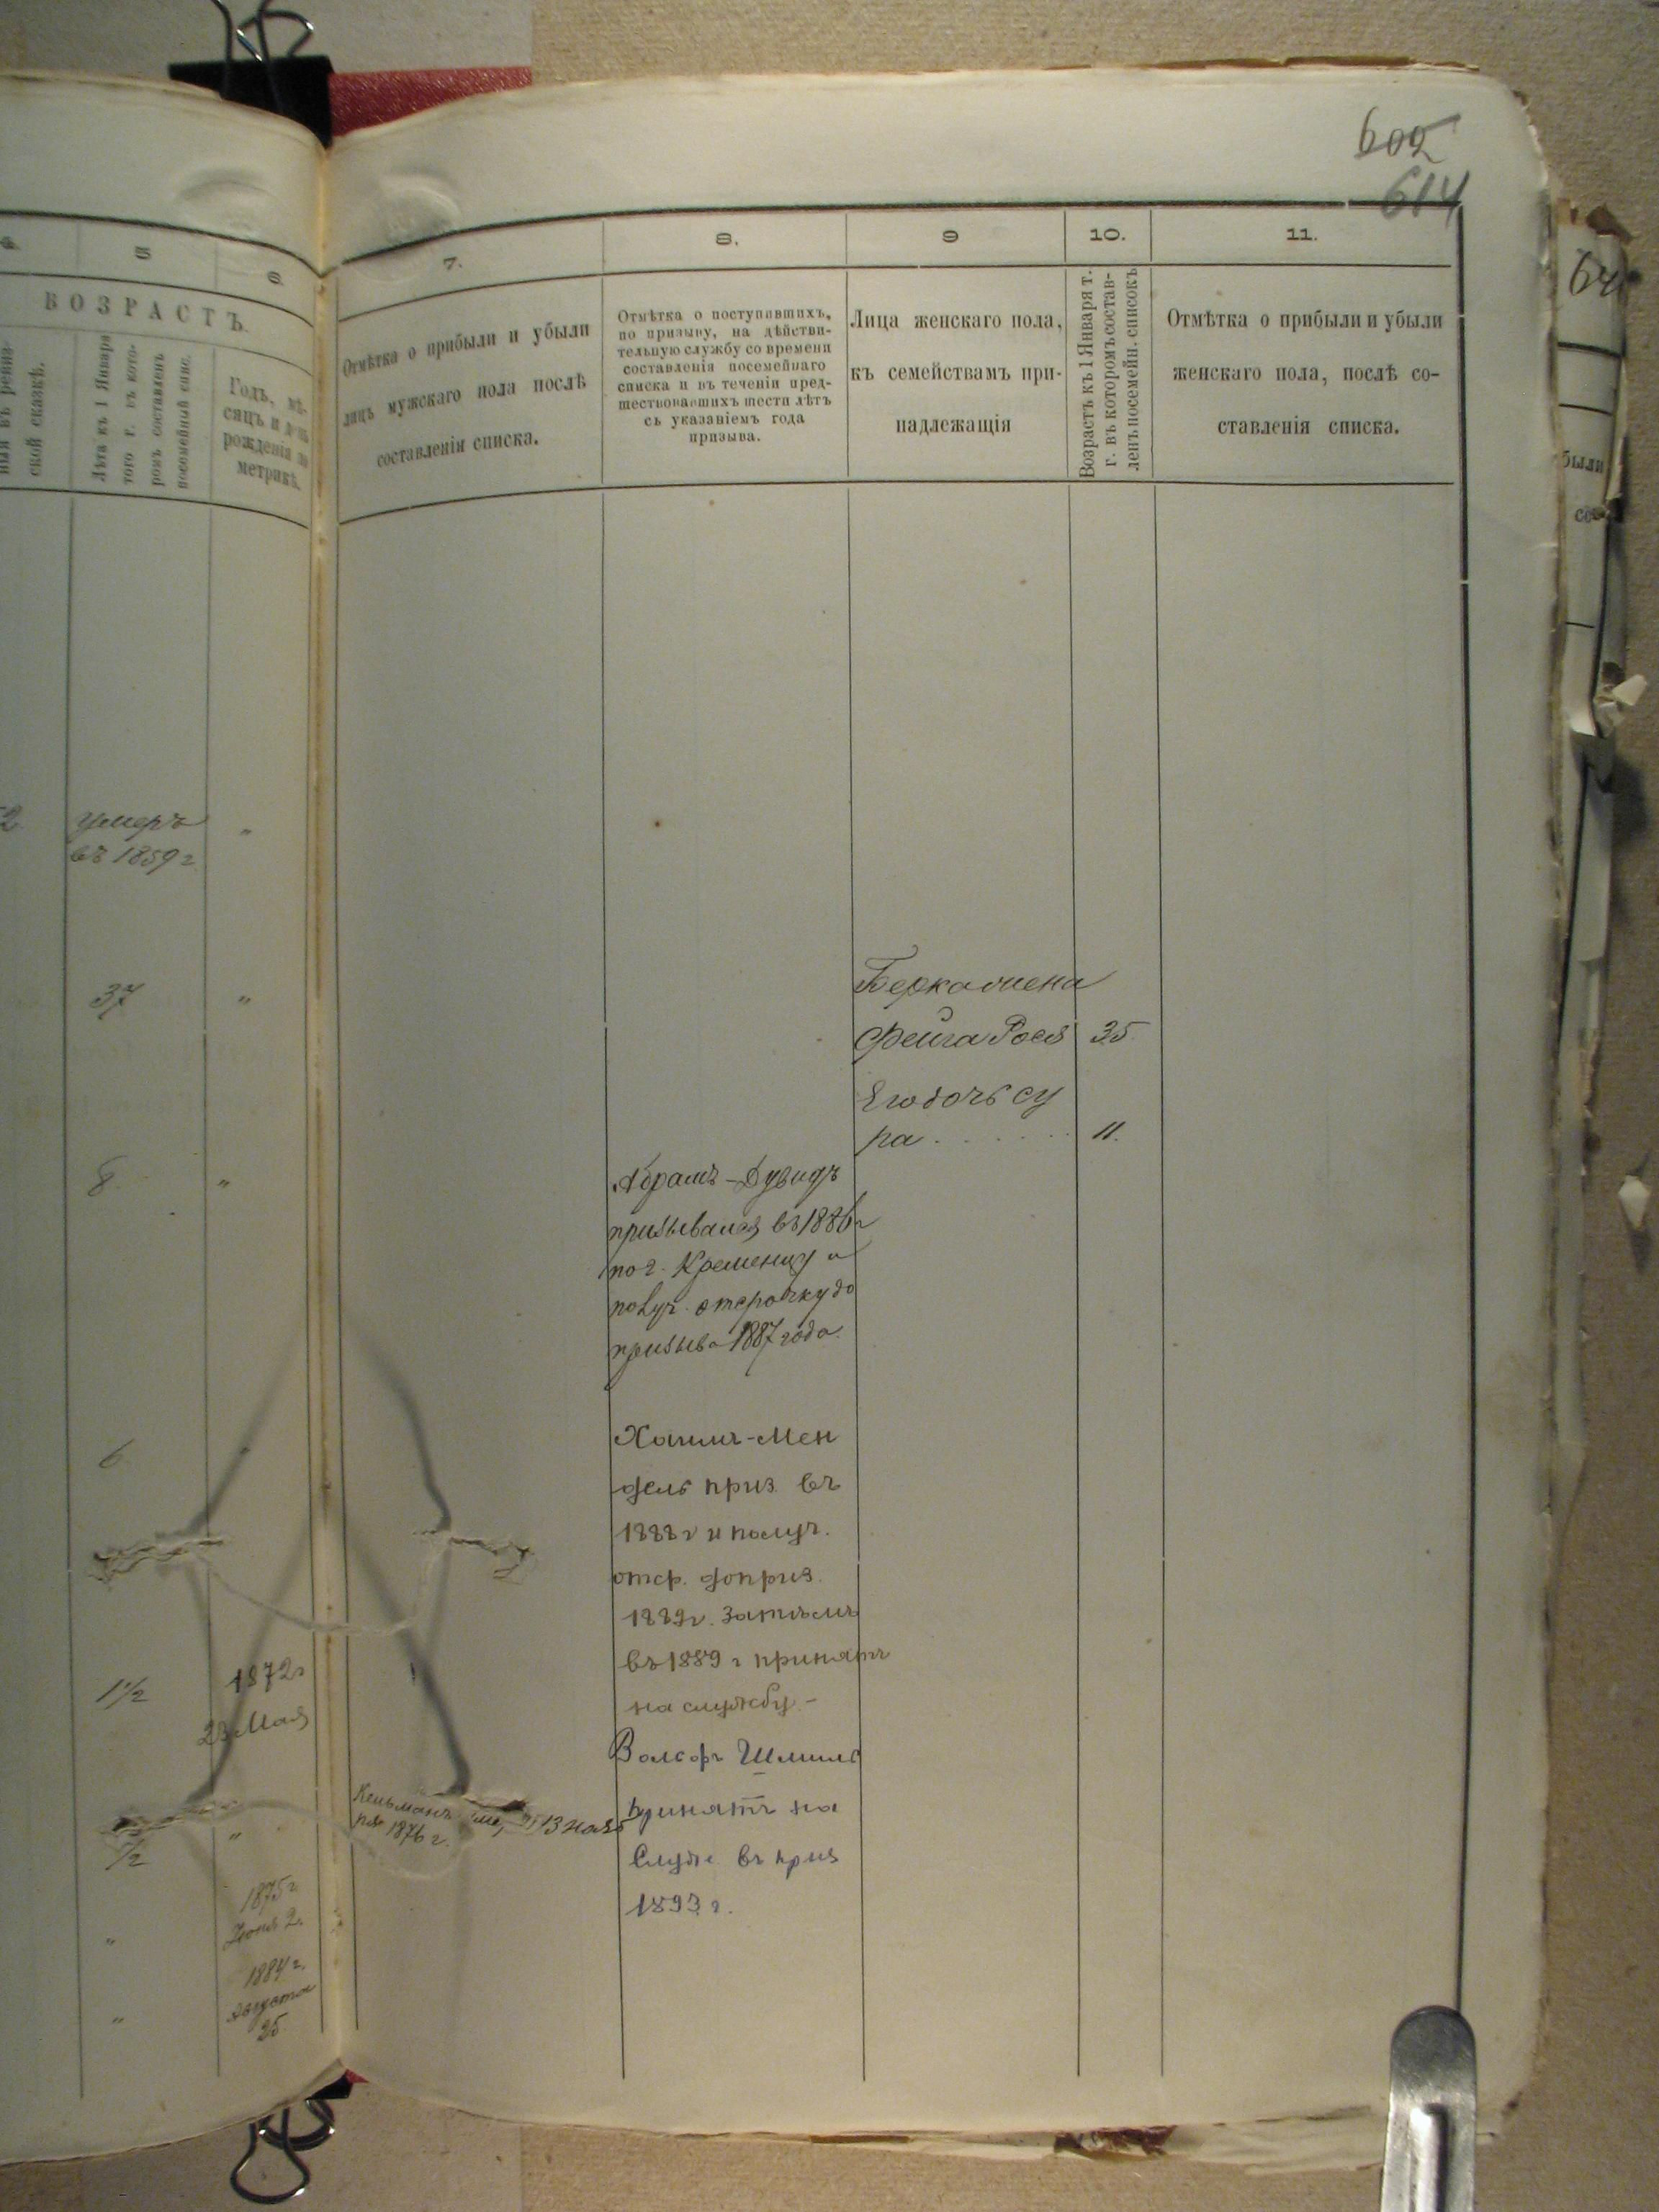 605
614
5
6.
7.
8.
9
10.
11.
ВОЗРАСТЪ.
ской сказкѣ.
Лѣта къ 1 Января
того г. въ кото-
ромъ составленъ
посемейный спис.
Годъ, мѣ-
сяцъ и день
рожденія по
метрикѣ.
Отмѣтка о прибыли и убыли
лицъ мужскаго пола послѣ
составленія списка.
Отмѣтка о поступившихъ,
по призыву, на дѣйстви-
тельную службу со времени
составленія посемейнаго
списка и въ теченіи пред-
шествовавшихъ шести лѣтъ
съ указаніемъ года
призыва.
Лица женскаго пола,
къ семействамъ при-
надлежащія
Возрастъ къ 1 Января т.
г. въ которомъ состав-
ленъ посемейн. списокъ
Отмѣтка о прибыли и убыли
женскаго пола, послѣ со-
ставленія списка.
были
умеръ „
въ 1859 г
37 „
Берка жена
Фейга Рося 35
Его дочь Су
ра . . . . . . 11.
8 „
Абрамъ-Дувидъ
призывался въ 1886 г
по г. Кременцу и
получ. отсрочку до
призыва 1887 года.
6
Хаимъ-Мен
дель приз. въ
1888 г и получ.
отср. до приз.
1889 г. Затѣмъ
въ 1889 г принятъ
на службу.-
1½ 1872 г
23 Мая
Волфъ Шмиль
принятъ на
Служ. въ приз
1893 г.
Кельманъ 13 нояб
ря 1876 г.
½ „
1875 г.
„ Іюня 2.
1884 г.
„ Августа
25